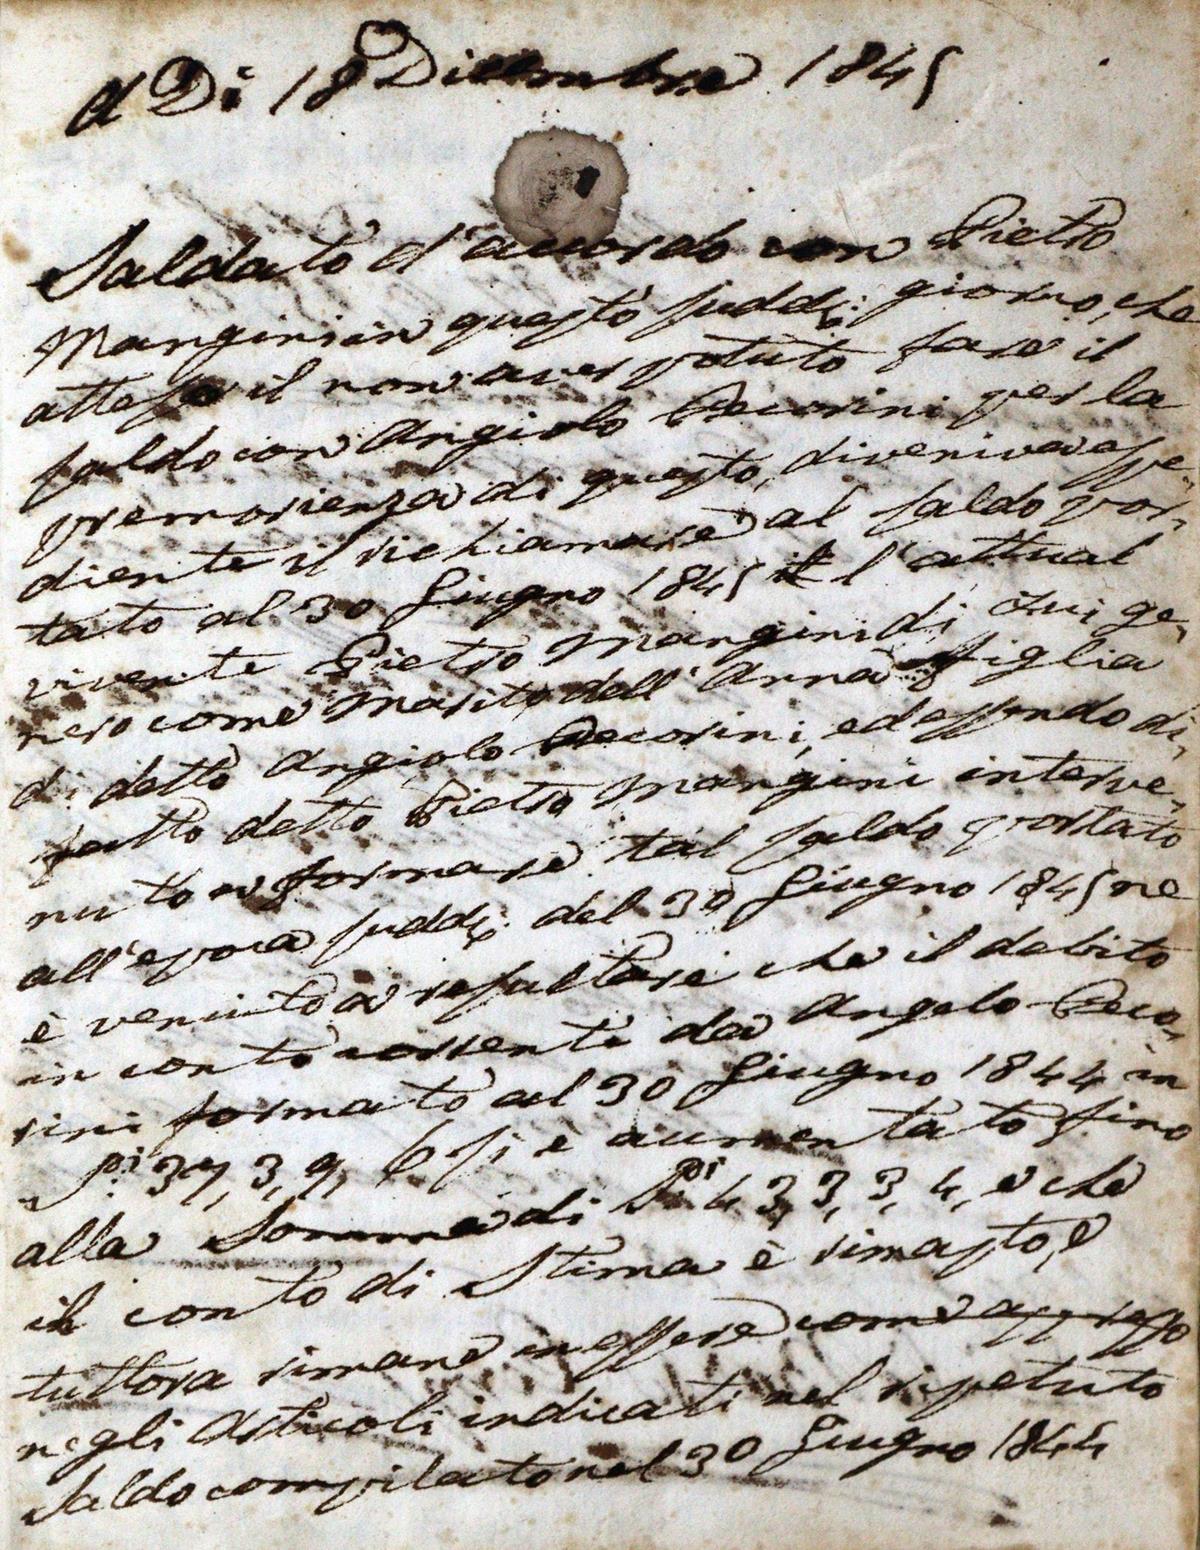 A Di 18 Dicembre 1845
Saldato d'accordo con Pietro
Mangini in questo sudd. giorno, che
atteso il non aver potuto fare il
saldo con Angiolo Pecorini per la
premorienza di questo, diveniva espe„
diente il richiamare al saldo por„
tato al 30 Giugno 1845 l'attual
vivente Pietro Mangini di Lui ge„
nero come Marito dell'Anna figlia
di detto Angiolo Pecorini, ed essendo di„
fatto detto Pietro Mangini interve„
nuto a formare tal saldo portato
all'epoca sudd. del 30 Giugno 1845 ne
è venuto a resultare che il debito
in conto corrente da Angelo Peco„
rini formato al 30 Giugno 1844 in
S.di 37, 3, 9, 6 si è aumentato fino
alla Somma di S.di 43, 3, 3, 4, e che
il conto di Stima è rimasto, e
tuttora rimane in essere come appresso
negli Articoli indicati nel ripetuto
Saldo compilato nel 30 Giugno 1844